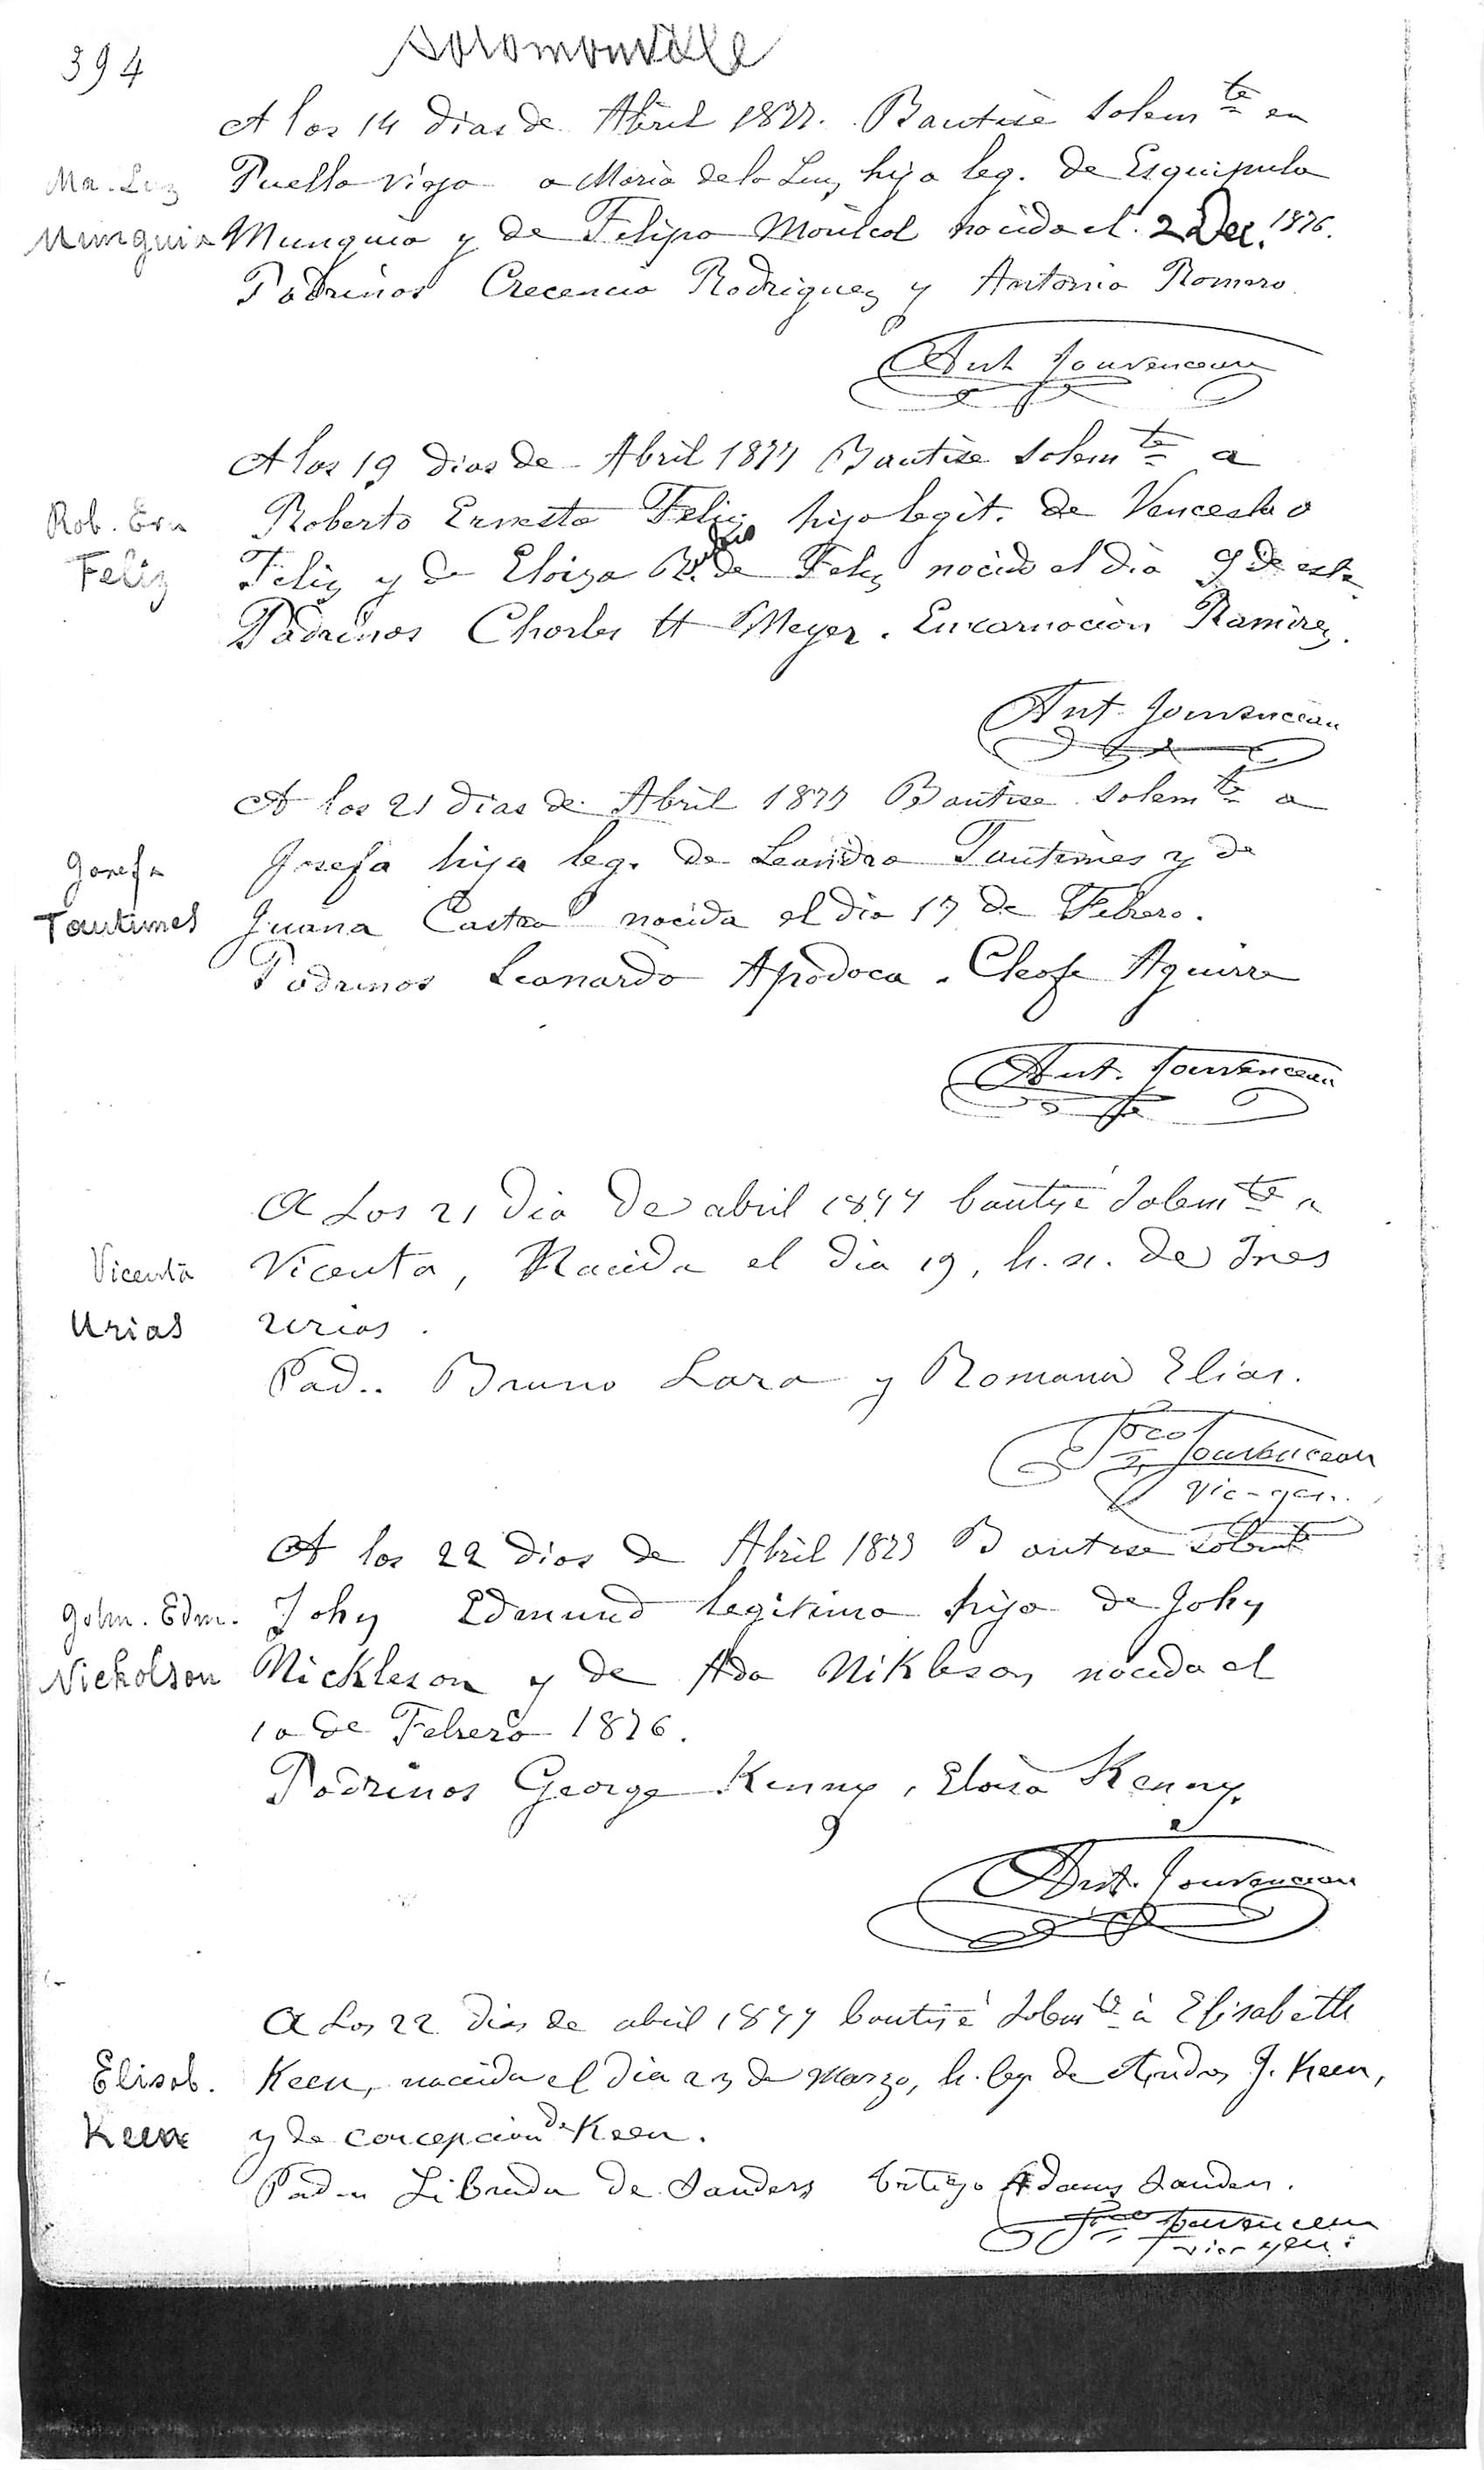 394
Solomonville
A los 14 dias de Abril 1877. Bautise solem te en
Ma. Luz
Puello viejo a Maria de la Luz, hija leg. de Esquipula
Munguia
Munguia y de Felipa nacida el 2 Dec. 1876.
Padrinos Crecencio Rodriguez y Antonia Romero
Ant Jouvenceau
A los 19 dias de Abril 1877 Bautise solem te a
Rob. Ern
Roberto Ernesto Feliz hijo legit. de Venceslao
Feliz
Feliz y de Eloiza de Feliz nacido el dia 9 de este
Padrinos Charles H Meyer. Encarnacion Ramirez.
Ant. Jouvenceau
A los 21 dias de Abril 1877 Bautise solem te a
Josefa
Josefa hija leg. de Leandro Tautimes y de
Tautimes
Juana Castro nacida el dia 17 de Febrero.
Padrinos Leonardo Apodoca. Cleofe Aguirre
Ant. Jouvenceau
A Los 21 dia de abril 1877 bautisé Solem te a
Vicenta
Vicenta, Nacida el dia 19, h. n. de Ines
Urias
urias.
Pad.. Bruno Lara y Romana Elias.
Fco Jouvenceau
vic-gen.
A los 22 dios de Abril 1877 Bautise solemte
John. Edm.
John Edmund legitimo hijo de John
Nickolson
Nickleson y de Ada Nikleson nacida el
10 de Febrero 1876.
Padrinos George Kenny, Eloisa Kenny.
Ant. Jouvenceau
A Los 22 dias de abril 1877 bautisé Solem te à Elisabeth
Elisab.
Keen, nacida el dia 23 de Marzo, h. leg. de Andres J. Keen,
Keen
y de concepcion de Keen.
Pad.. Librada de Sanders testigo Adams Sanders.
Fco Jouvenceau
vic-gen.